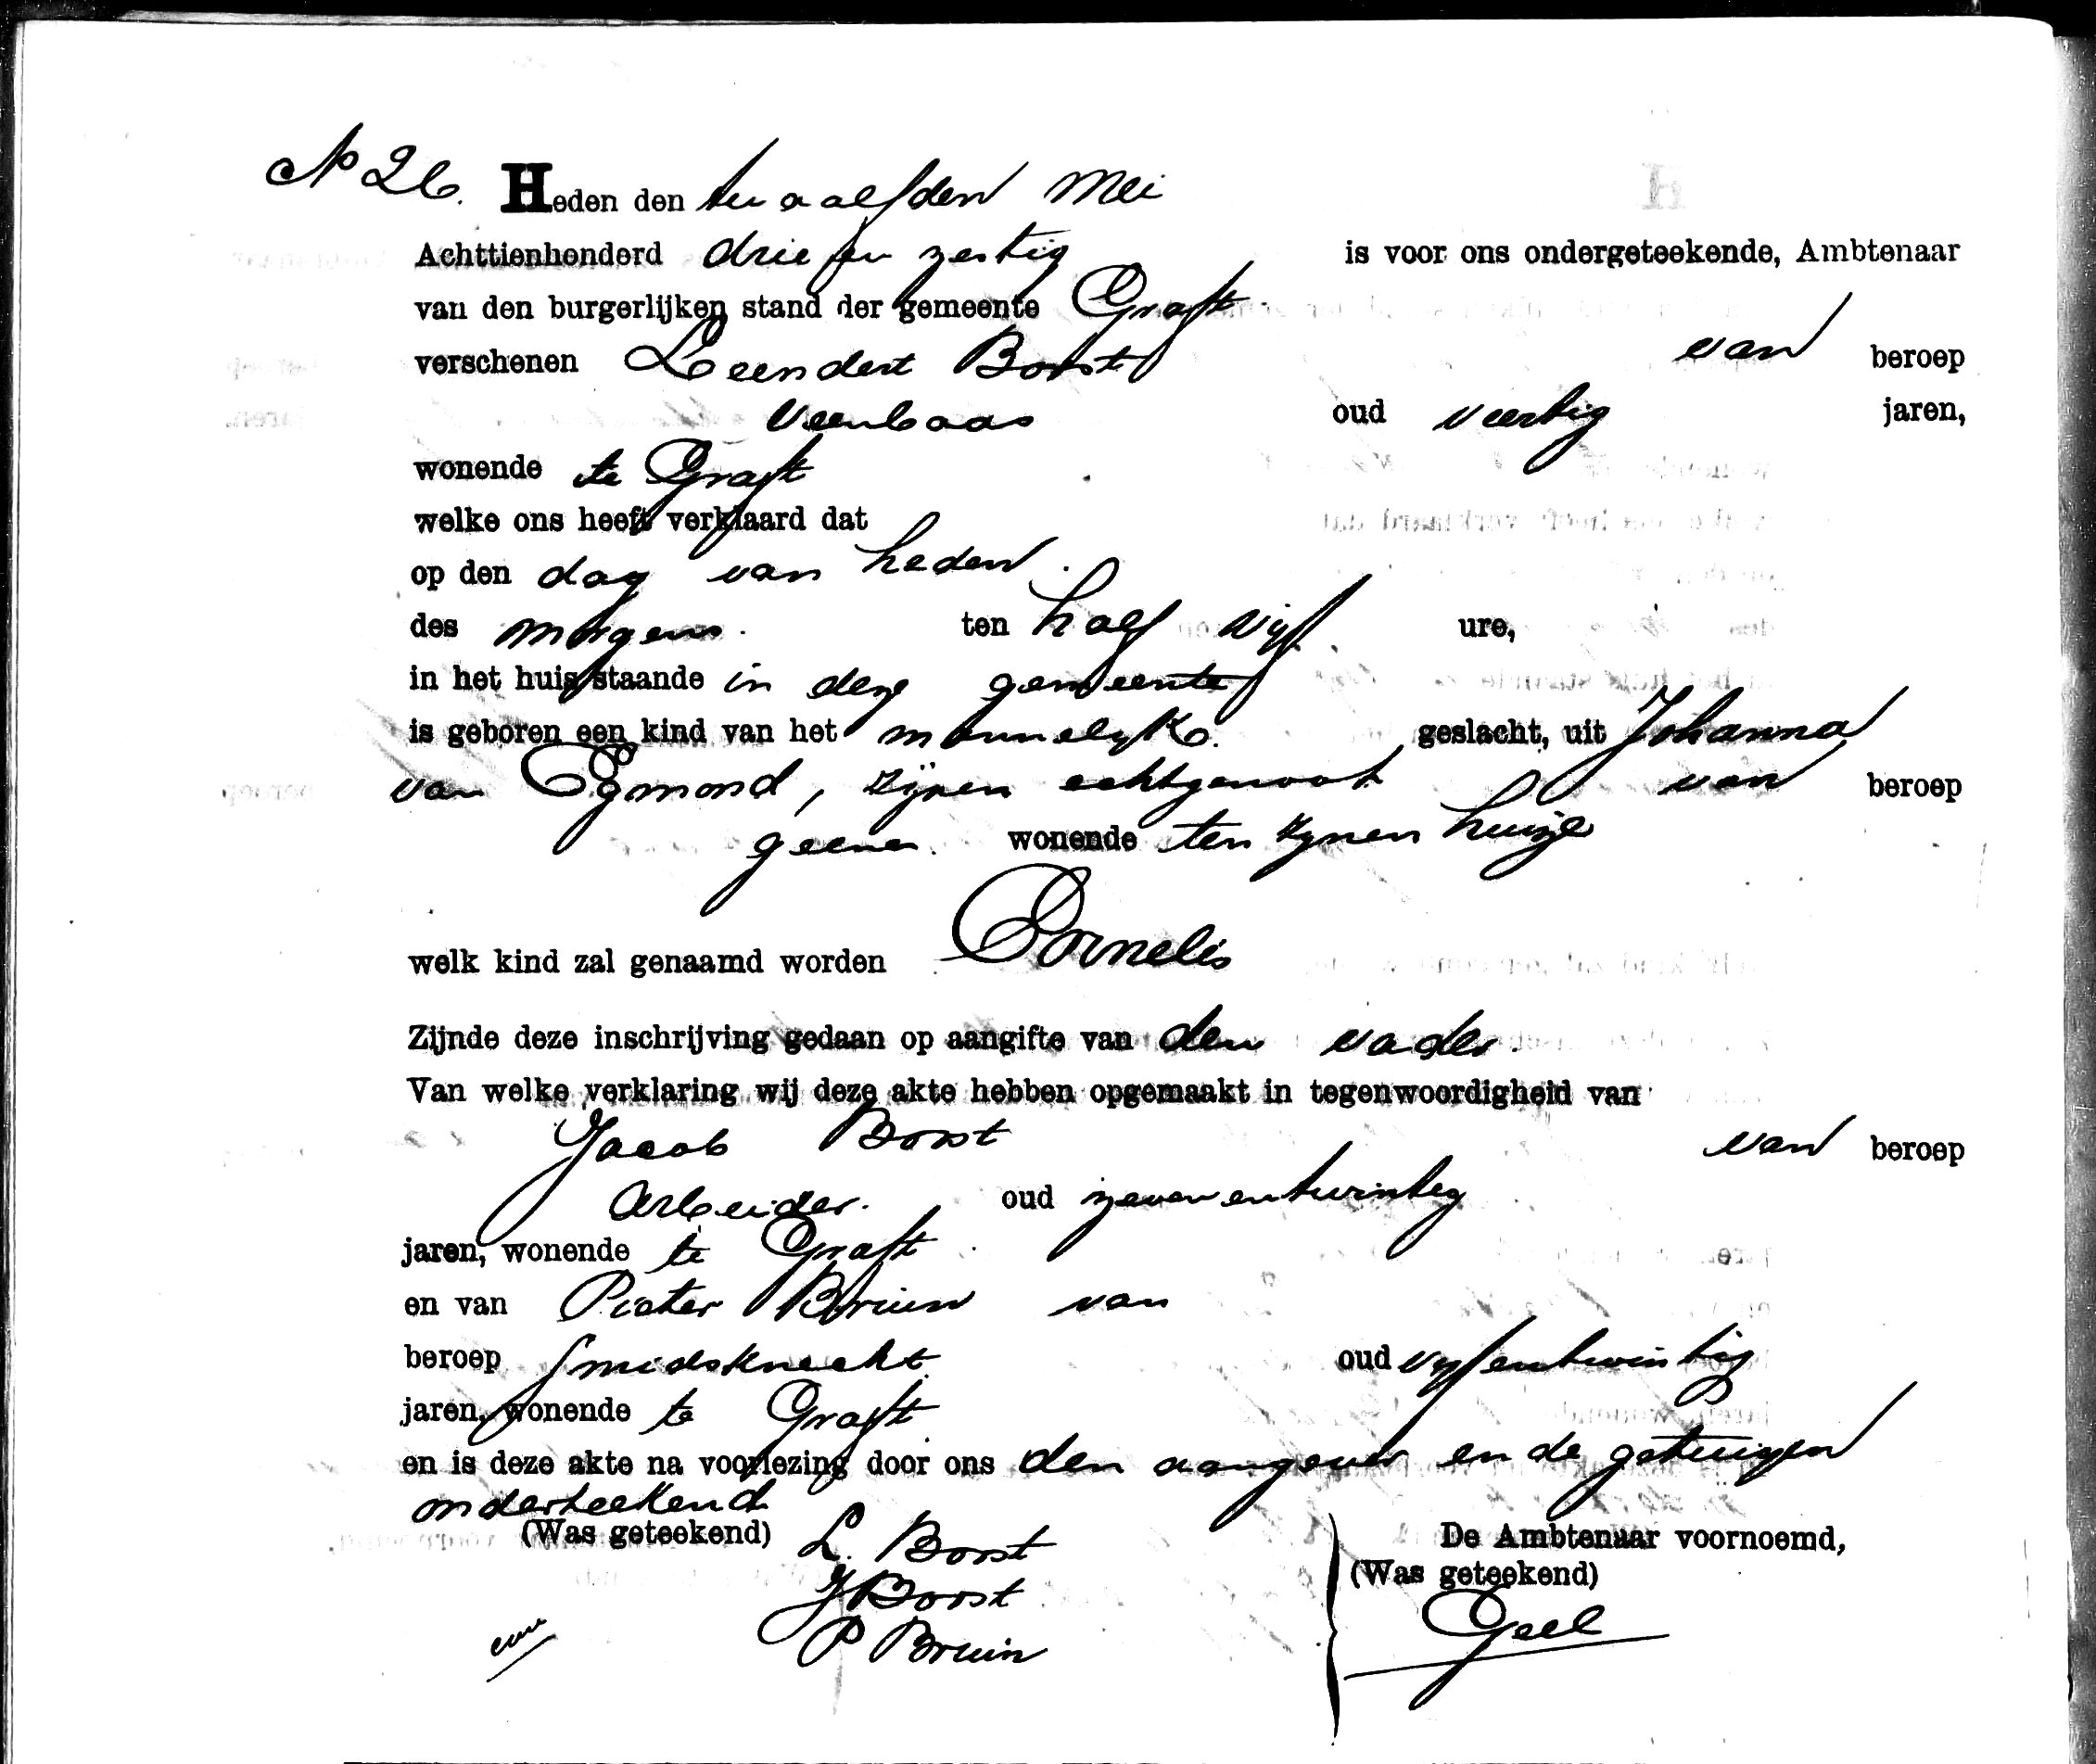 No 26. Heden den twaalfden Mei
Achttienhonderd drie en zestig is voor ons ondergeteekende, Ambtenaar
van den burgerlijken stand der gemeente Graft
verschenen Leendert Borst van beroep
Veenbaas oud veertig jaren,
wonende te Graft
welke ons heeft verklaard dat
op den dag van heden.
des morgens ten half vijf ure,
in het huis staande in deze gemeente
is geboren een kind van het mannelyke geslacht, uit Johanna
van Egmond, zijnen echtgenoot van beroep
geene. wonende ten zynen huize
welk kind zal genaamd worden Cornelis
Zijnde deze inschrijving gedaan op aangifte van den vader.
Van welke verklaring wij deze akte hebben opgemaakt in tegenwoordigheid van
Jacob Borst van beroep
Arbeider. oud zevenentwintig
jaren, wonende te Graft
en van Pieter Bruin van
beroep smidsknecht oud vyfentwintig
jaren, wonende te Graft
en is deze akte na voorlezing door ons den aangever en de getuigen
onderteekend
(Was geteekend) L. Borst De Ambtenaar voornoemd,
J Borst (Was geteekend)
P Bruin Geel